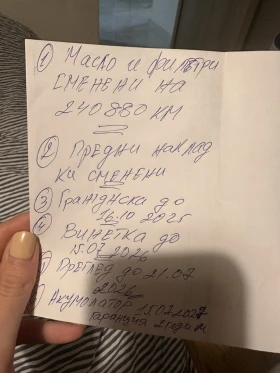 ① Масло и филтри
сменени на
240 880 км
② Предни наклад
ки сменени
③ Гражднска до
16.10 2025
④ Винетка до
15.07 2026
Преглед до 21.07
2026
Акумолатор 15.07.2027
гаранция 2 годин